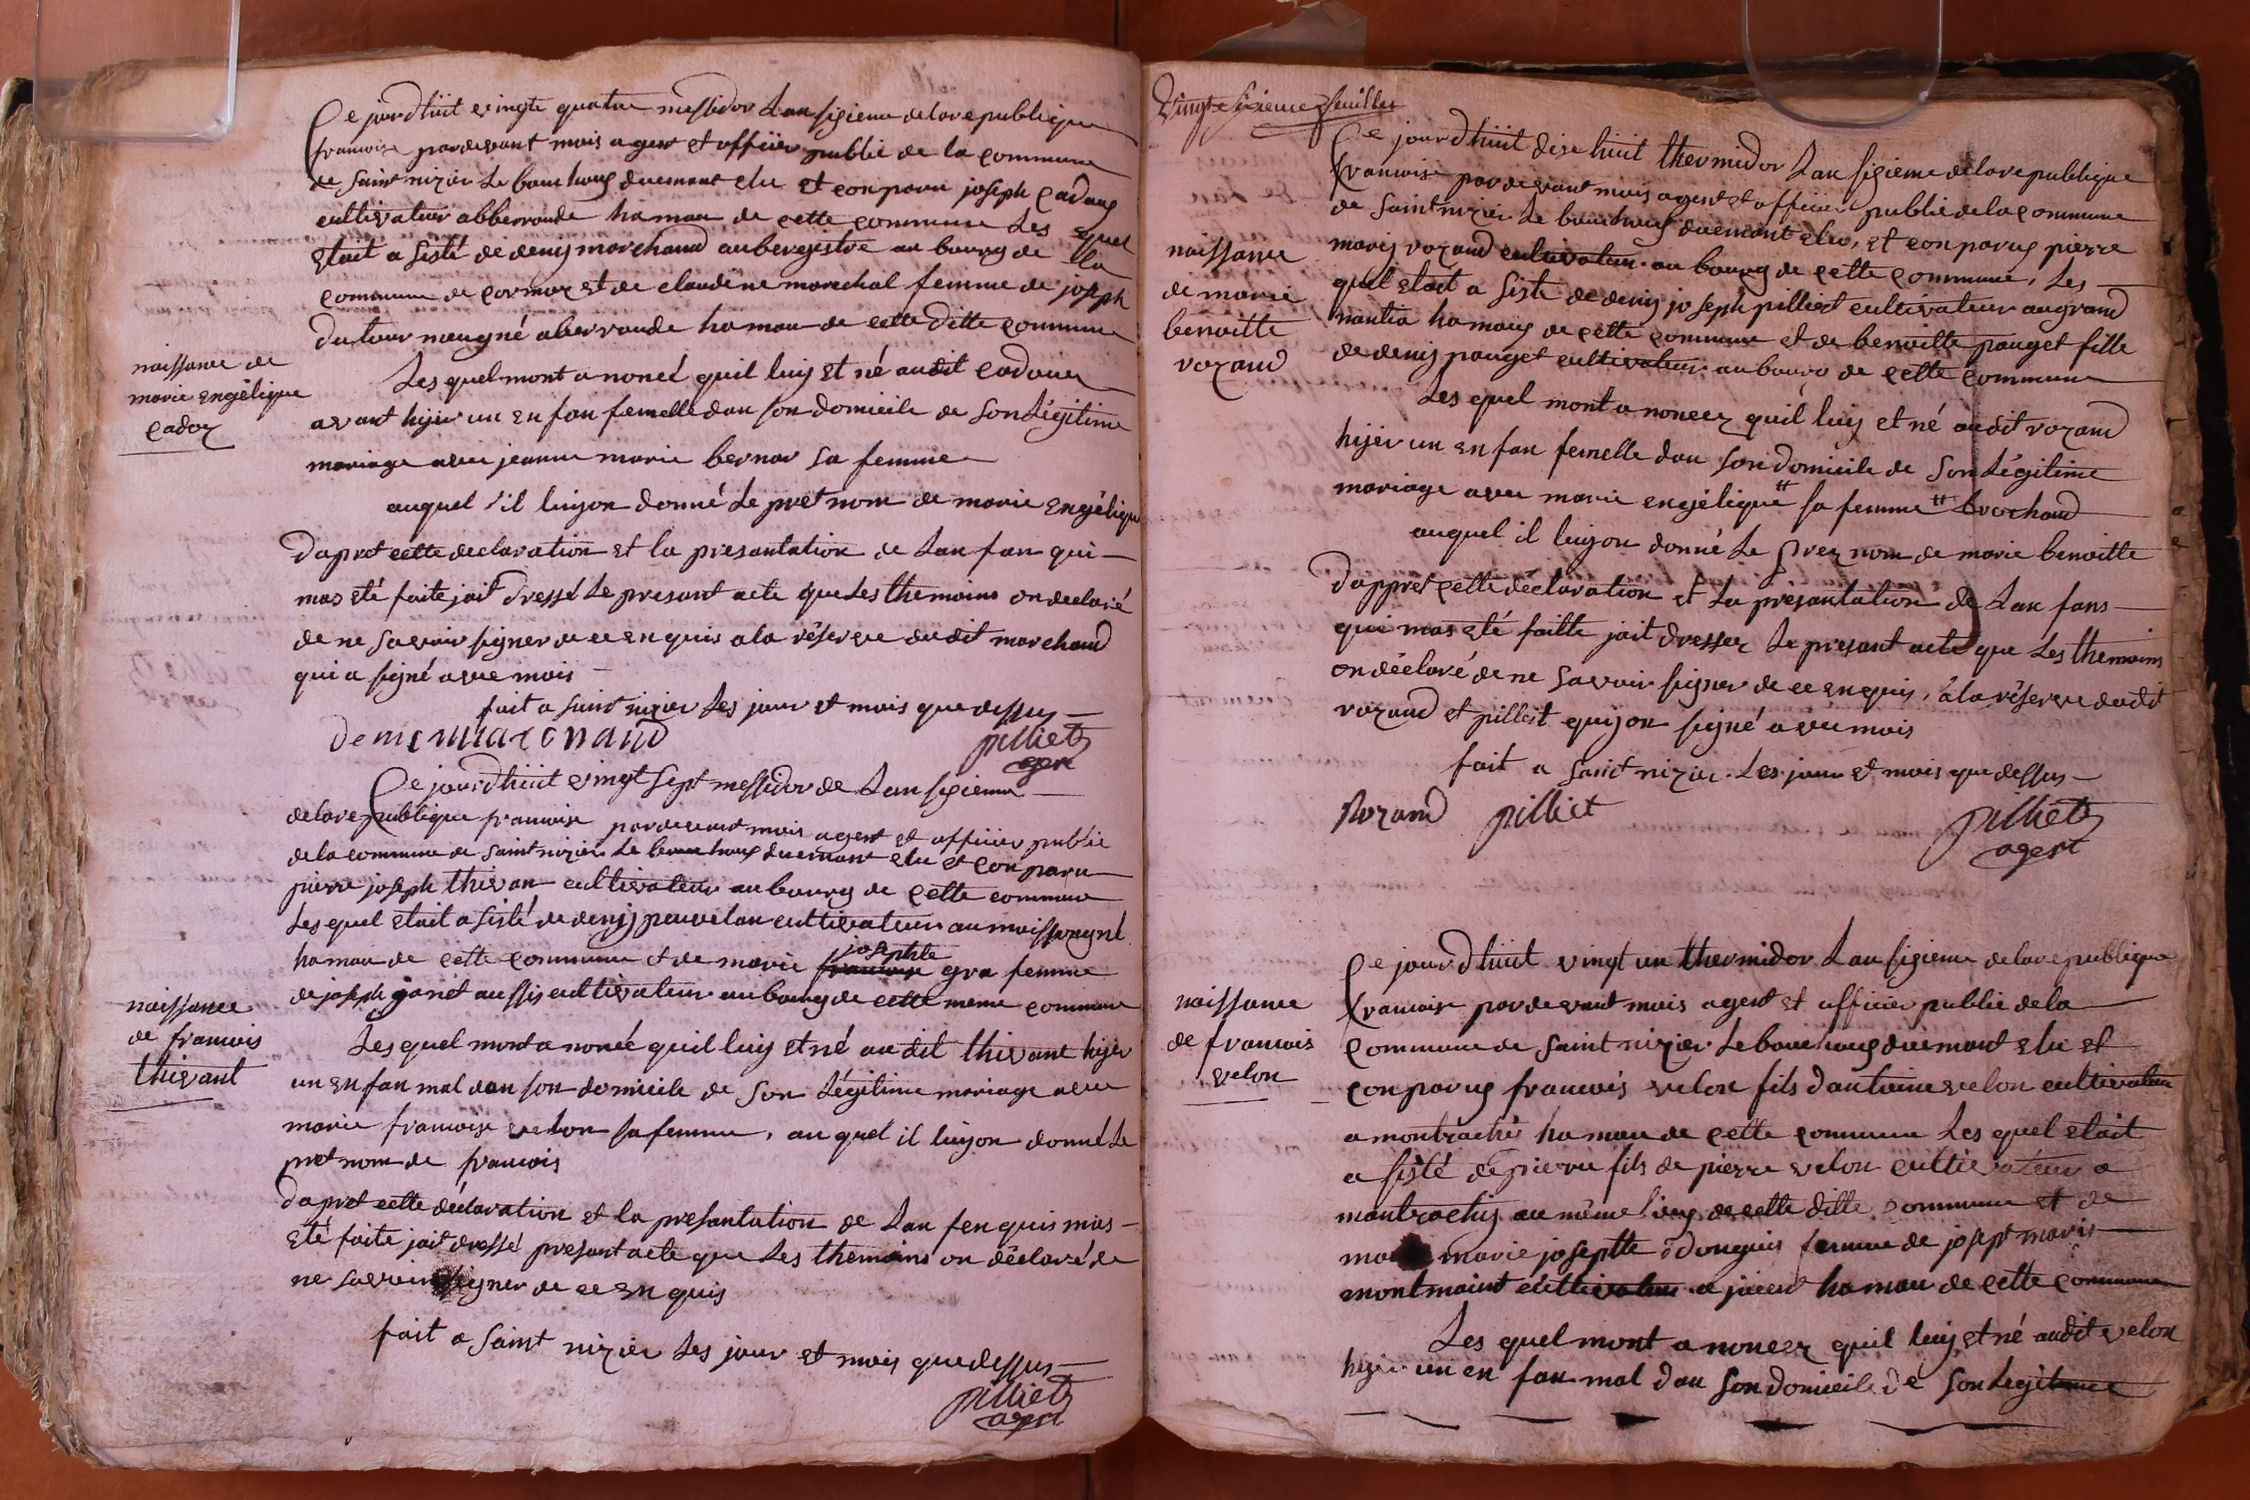 Ce jourdhüit vingte quatre messidor Lan sixieme de la republique
francoise pardevant mois agent et officier public de la commune
de saint nizier Le bouchoux duement elu et conparu joseph cadoux
cultivateur abberoude hamau de cette commune Les quel
etait asisté de denis marchand aubergistre au bourg de la
commune de cormoz et de claudine marechal femme de joseph
dutour meugné aberoude hamau de cette ditte commune
naissance de
marie engélique
cadoz
Les quel mont anoncé quil luis et né audit cadoux
avant hijer un enfan femelle dan son domicile de son Légitime
mariage avec jeanne marie bernar sa femme
auquel s'il luijon donné Le pret nom de marie engélique
dapret cette declaration et la presantation de Lan fan qui
mas été faite jait dressé Le presant acte que Les themoins on declaré
de ne savoir signer de ce enquis a la réserve dudit marchand
qui a signé avec mois
fait a saint nizier Les jour et mois que dessus
denis marchand pilliet
agent
Ce jourdhüit vingt sept messidor de Lan sixieme
de la republique francoise pardevant mois agent et officier public
de la commune de saint nizier Le bouchoux duement elu et conparu
pierre joseph thivan cultivateur au bourg de cette commune
Les quel etait asisté de denis pauvelan cultivateur au moissonyné
josephte
hamau de cette commune et de marie francoise gra femme
de joseph ganet aussis cultivateur au bourg de cette meme commune
naissance
de francois
thivant
Les quel mont anoncé quil luis et né audit thivant hijer
un enfan mal dan son domicile de son Légitime mariage avec
marie francoise velon sa femme, auquel il luijon donné Le
pret nom de francois
dapret cette déclaration et la presantation de Lan fen quis mas
été faite jait dressé presant acte que Les themoins on déclaré de
ne savoir signer de ce enquis
fait a saint nizier Les jour et mois que dessus
pilliet
agent
Vingt sixieme feuillet
Ce jourdhüit dixe huit thermidor Lan sixieme de la republique
francoise pardevant mois agent et officier public de la commune
de saint nizier Le bouchoux duement elu, et conparus pierre
naissance
de marie
benoitte
vozand
maris vozand cultivateur au bourg de cette commune, Les
quel etait a sisté de denis joseph pilliet cultivateur au grand
nantia hamaus de cette commune et de benoitte pauget fille
de denis pauget cultivateur au bourg de cette commune
Les quel mont anoncez quil luis et né audit vozand
hijer un enfan femelle dan son domicile de son Légitime
mariage avec marie engélique # sa femme # brochand
auquel il luijon donné Le prez nom de marie benoitte
dappret cette déclaration et La présantation de Lan fans
qui mas été faitte jait dresser Le presant acte que Les themoins
on déclaré de ne savoir signer de ce enquis, a la réserve dudit
vozand et pilliet quijon signé avec mois
fait a saint nizier Les jour et mois que dessus
Vozand pilliet pilliet
agent
Ce jourdhüit vingt un thermidor Lan sixieme de la republique
naissance
de francois
velon
francoise pardevant mois agent et officier public de la
commune de saint nizier Le bouchoux duement elu et
conparus francois velon fils dantoine velon cultivateur
a montrachis hamau de cette commune Les quel etait
a sisté de pierre fils de pierre velon cultivateur a
montrachis au même lieux de cette ditte commune et de
marie josephtte donguis femme de josept maris
montmaint cultivateur a jaient hamau de cette commune
Les quel mont anoncez quil luis et né audit velon
hijer un en fan mal dan son domicile de son Légitime